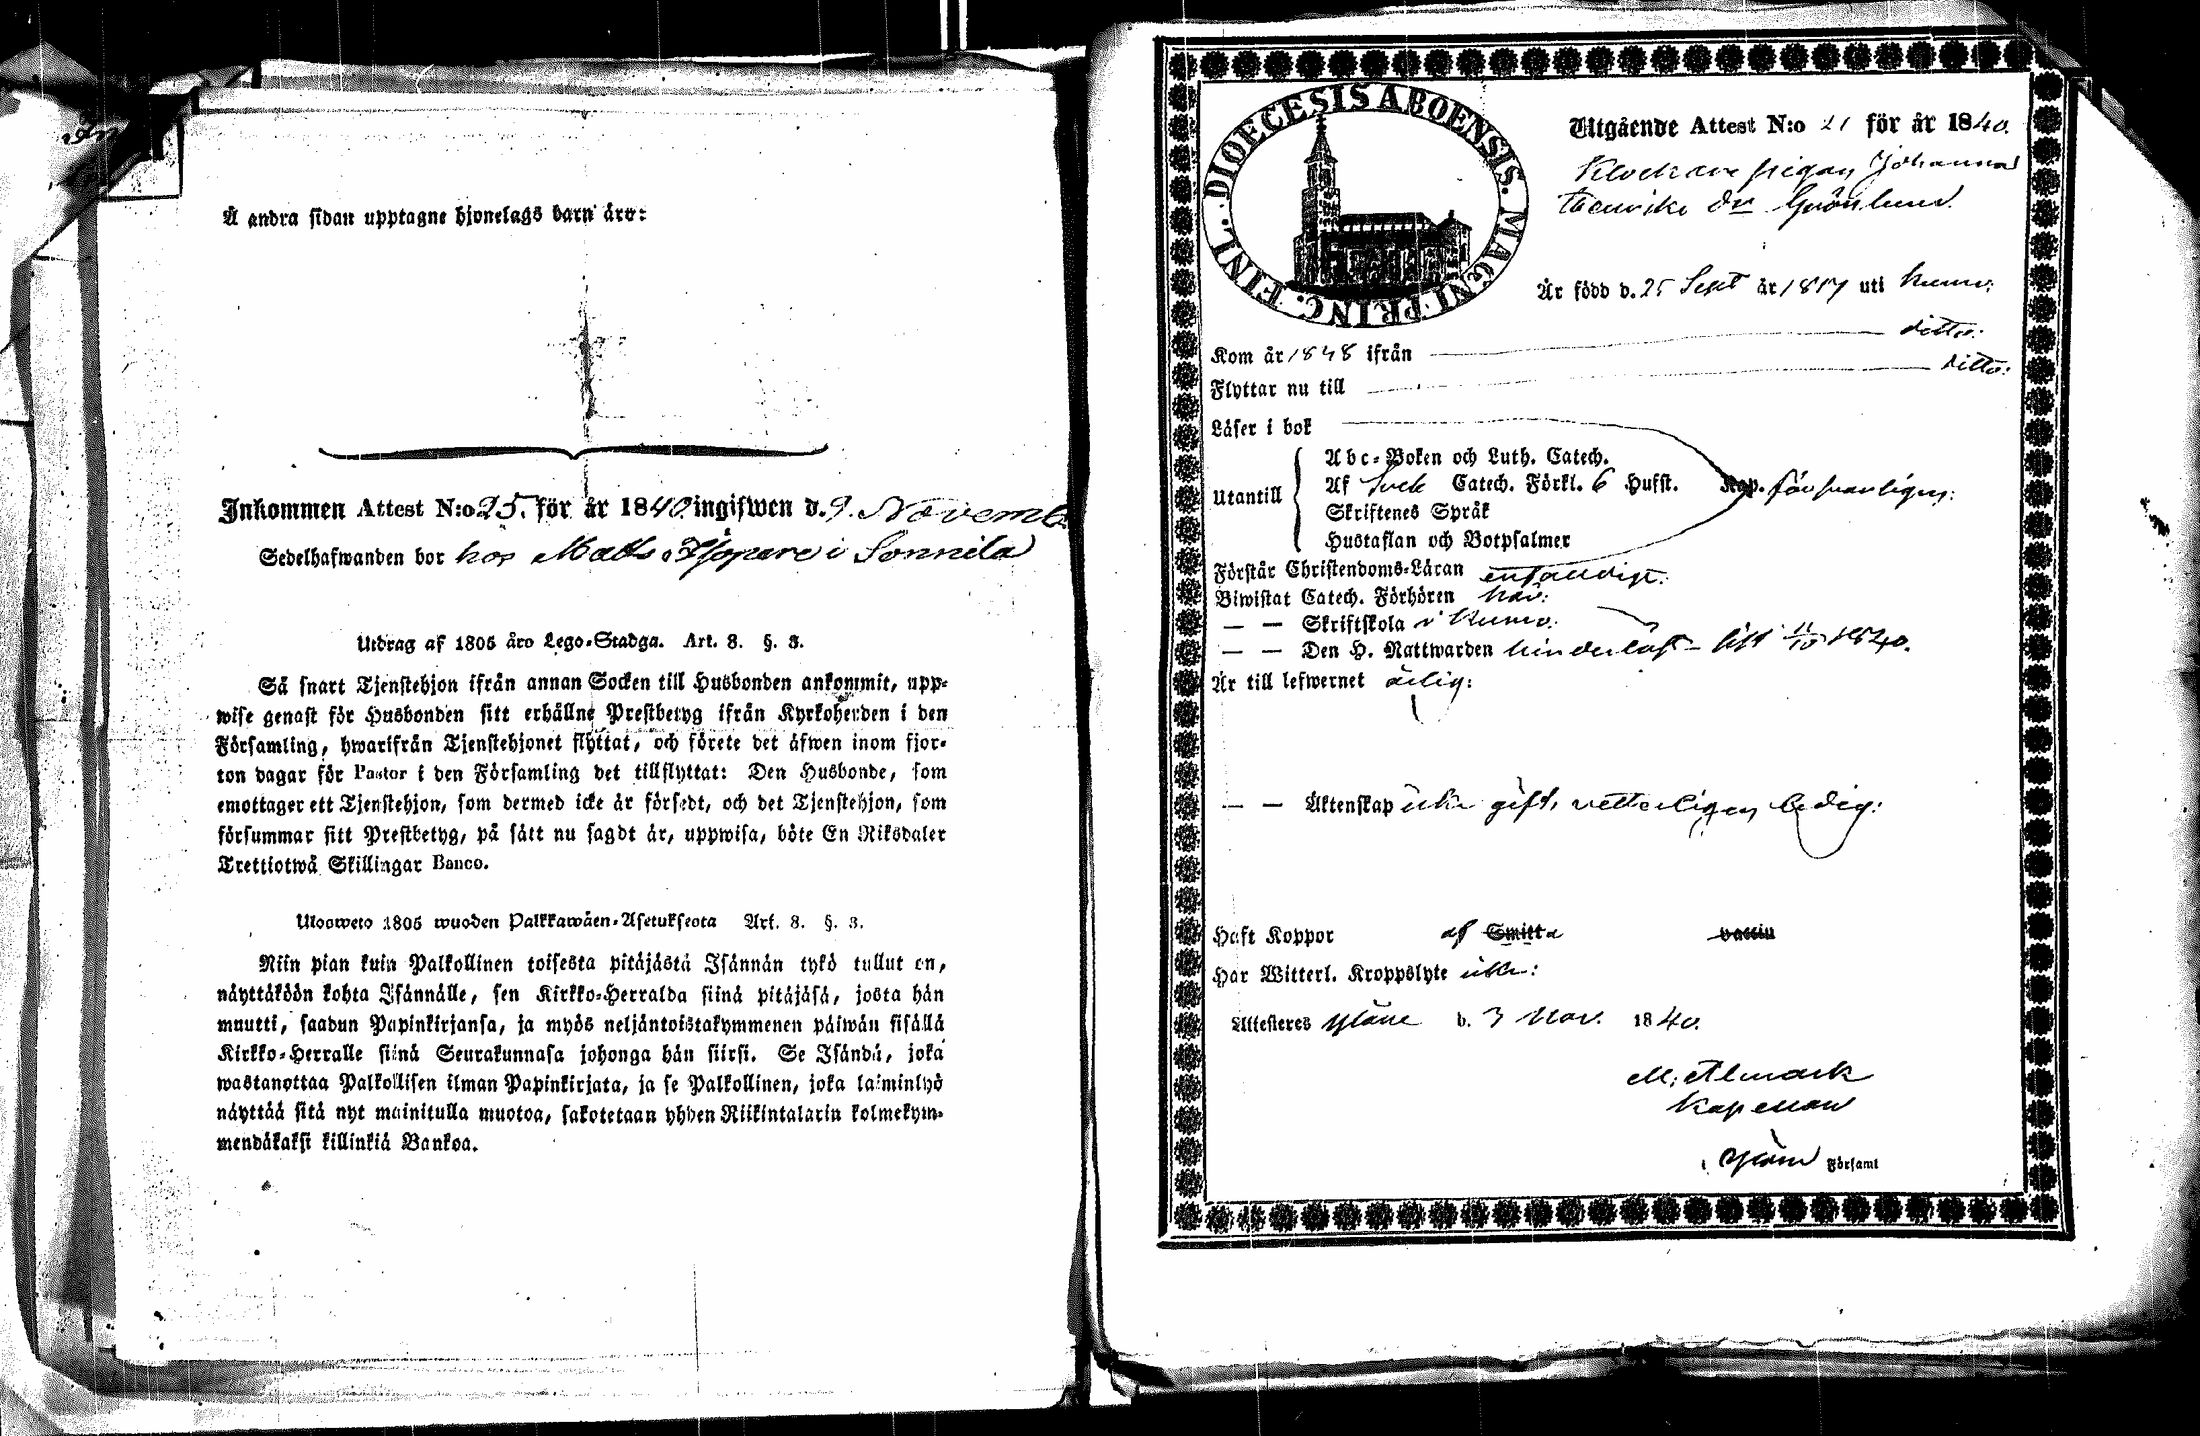 Å andra sidan upptagne hjonelags barn äro:
Inkommen Attest N:o 25. för år 1840. ingifwen d. 9. Novemb
Sedelhafwanden bor hos Matts i Sonnila
Utdrag af 1805 åro Lego-Stadga. Art. 8. §. 3.
Så snart Tjenstehjon ifrån annan Socken till Husbonden ankommit, upp-
wise genast för Husbonden sitt erhållne Prestbetyg ifrån Kyrkoherden i den
Församling, hwarifrån Tjenstehjonet flyttat, och förete det äfwen inom fjor-
ton dagar för Pastor i den Församling det tillflyttat: Den Husbonde, som
emottager ett Tjenstehjon, som dermed icke är försedt, och det Tjenstehjon, som
försummar sitt Prestbetyg, på sätt nu sagdt är, uppwisa, böte En Riksdaler
Trettiotwå Skillingar Banco.
Ulosweto 1805 wuoden Palkkawäen-Asetuksesta Art. 8. §. 3.
Niin pian kuin Palkollinen toisesta pitäjästä Isännän tykö tullut on,
näyttäköön kohta Isännälle, sen Kirkko-Herralda siinä pitäjäsä, josta hän
muutti, saadun Papinkirjansa, ja myös neljäntoistakymmenen päiwän sisällä
Kirkko-Herralle siinä Seurakunnasa johonga hän siirsi. Se Isändä, joka
wastanottaa Palkollisen ilman Papinkirjata, ja se Palkollinen, joka laiminlyö
näyttää sitä nyt mainitulla muotoa, sakotetaan yhden Riikintalarin kolmekym-
mendäkaksi killinkiä Bankoa.
DIOECESIS ABOENSIS. MAGNI PRINC. FINL.
Utgående Attest N:o 21 för år 1840.
pigan Johanna
Henrika Dr Grönlund
Är född d. 25 Sept år 1817 uti Kumo.
Kom år 1848 ifrån ditto:
Flyttar nu till ditto:
Läser i bok
Utantill
Abc-Boken och Luth. Catech.
Af Sveb Catech. Förkl. 6 Hufst. Kap. försvarligen:
Skriftenes Språk
Hustaflan och Botpsalmer
Förstår Christendoms-Läran enfaldigt:
Biwistat Catech. Förhören här:
— — Skriftskola i Kumo.
— — Den H. Nattwarden hinderlöst - sist 11/10 1840.
Är till lefwernet ärlig:
— — Äktenskap icke gift, vetterligen ledig:
Haft Koppor af Smitta vaccin
Har Witterl. Kroppslyte icke:
Attesteres Yläne d. 3 Nov. 1840.
M: Almark
Kapellan
i Yläne Församl